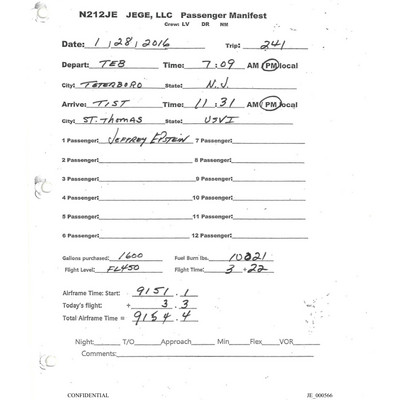 N212JE JEGE, LLC Passenger Manifest
Crew: LV DR NM
Date: 1 / 28 / 2016 Trip: 241
Depart: TEB Time: 7:09 AM PM local
City: TETERBORO State: N.J.
Arrive: TIST Time: 11:31 AM PM local
City: ST. THOMAS State: USVI
1 Passenger: JEFFREY EPSTEIN 7 Passenger:
2 Passenger: 8 Passenger:
3 Passenger: 9 Passenger:
4 Passenger: 10 Passenger:
5 Passenger: 11 Passenger:
6 Passenger: 12 Passenger:
Gallons purchased: 1600 Fuel Burn lbs. 10821
Flight Level: FL450 Flight Time: 3 + 22
Airframe Time: Start: 9151 . 1
Today's flight: + 3 . 3
Total Airframe Time = 9154 . 4
Night: T/O Approach Min Flex VOR
Comments:
CONFIDENTIAL JE_000566